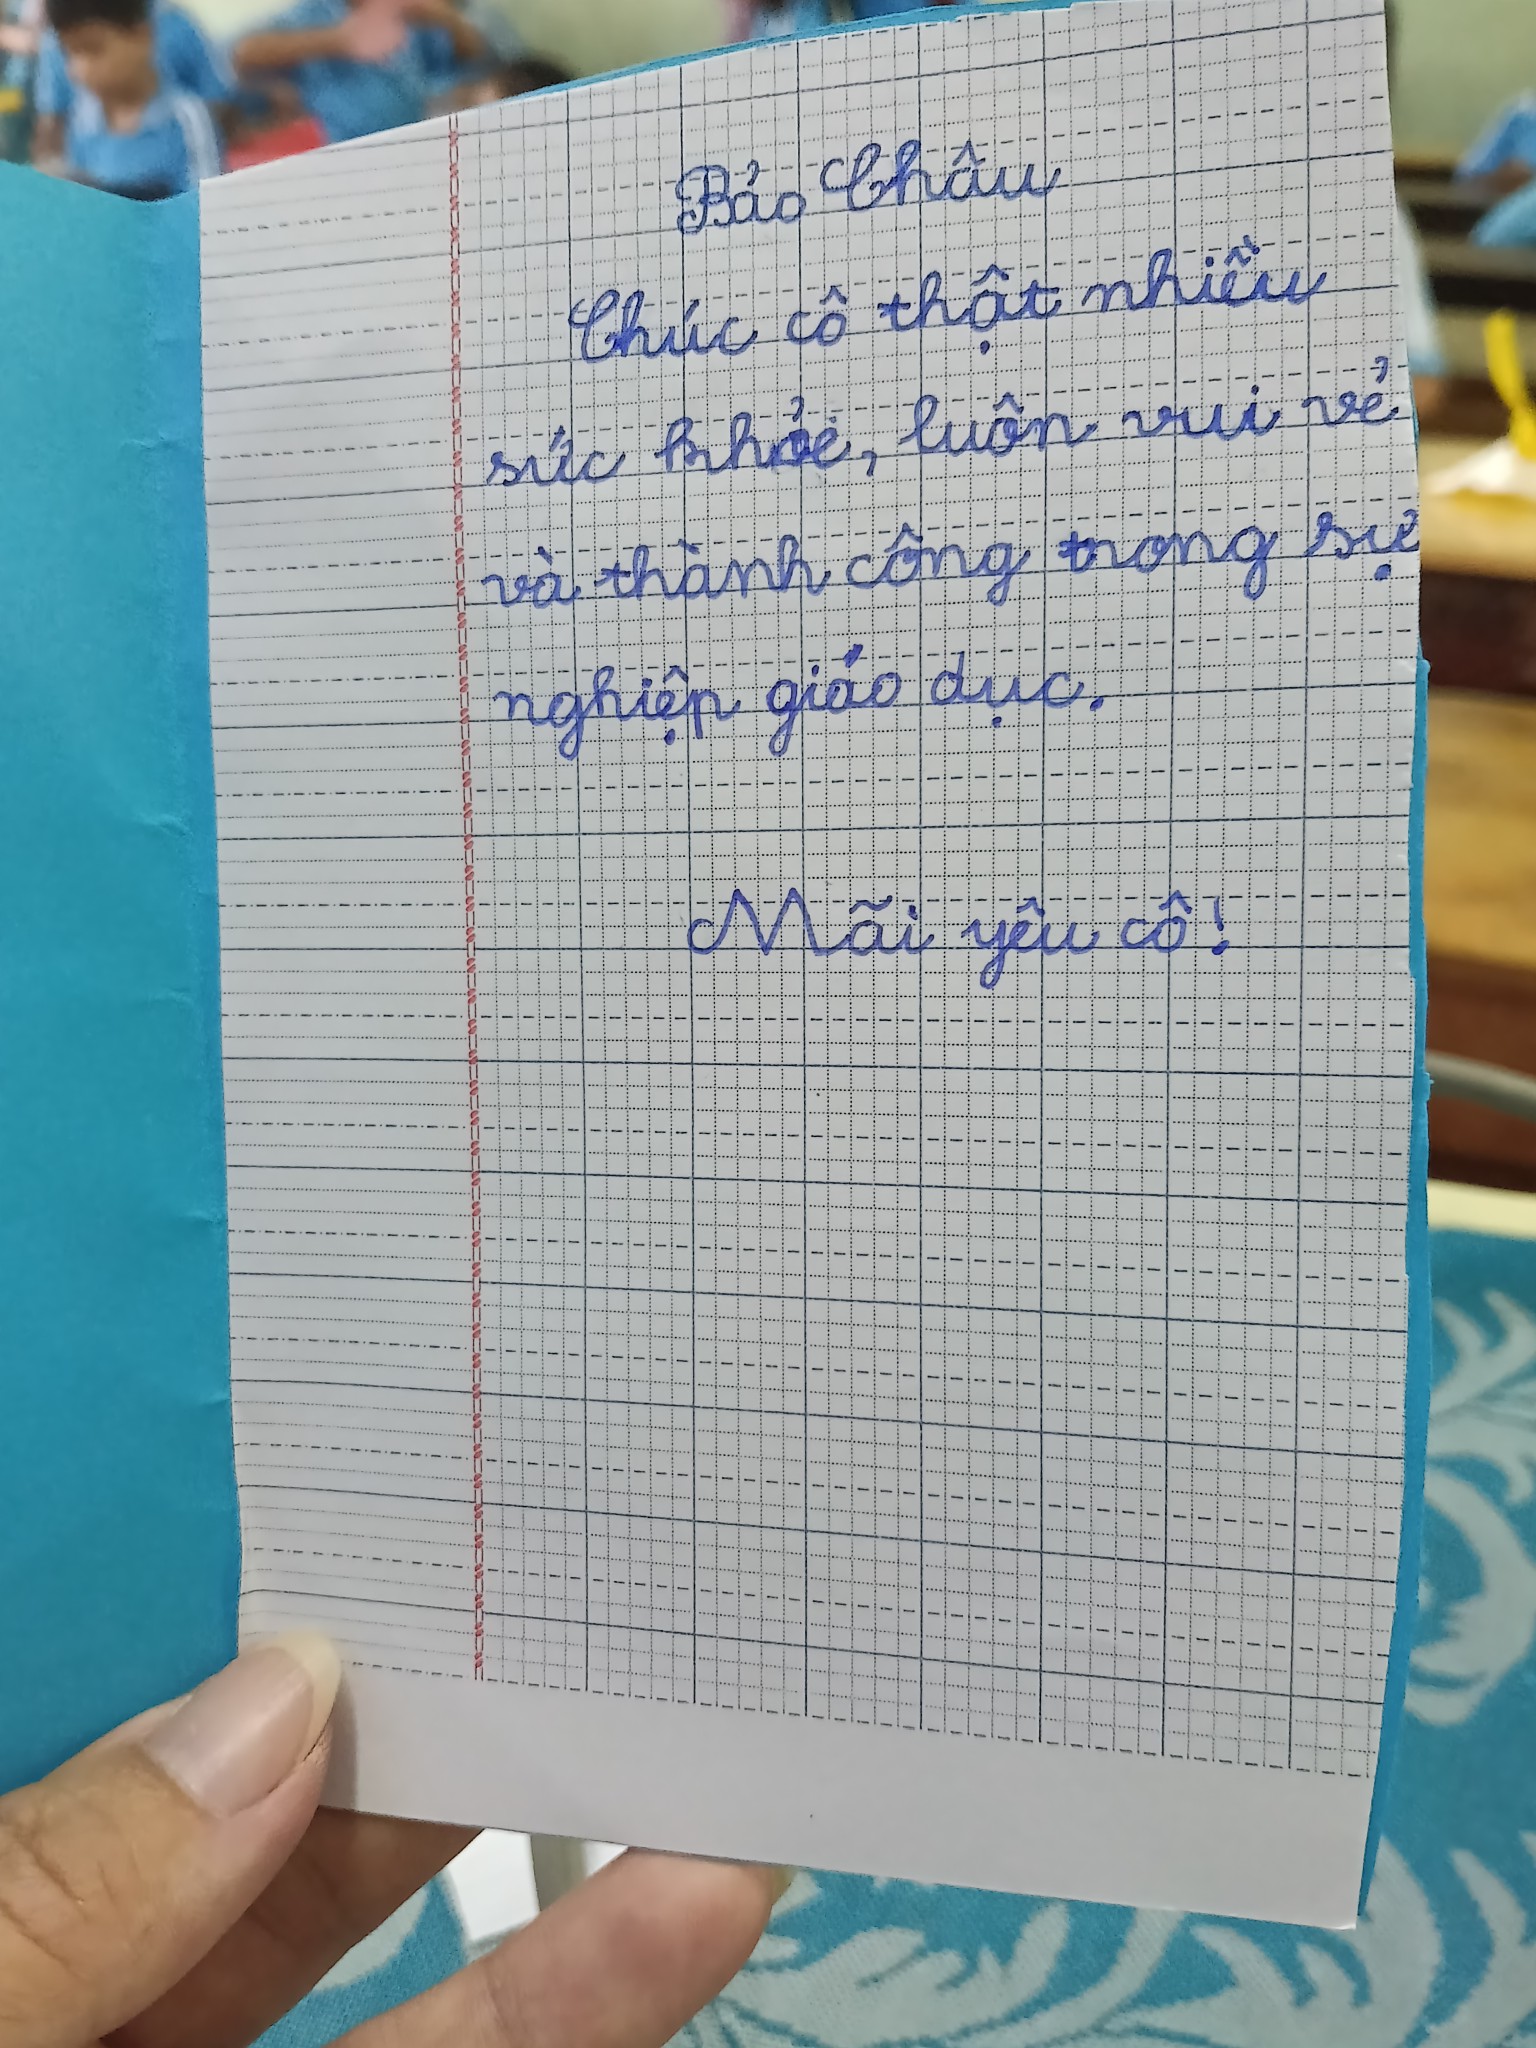 Bảo Châu
Chúc cô thật nhiều
sức khỏe, luôn vui vẻ
và thành công trong sự
nghiệp giáo dục.
Mãi yêu cô!